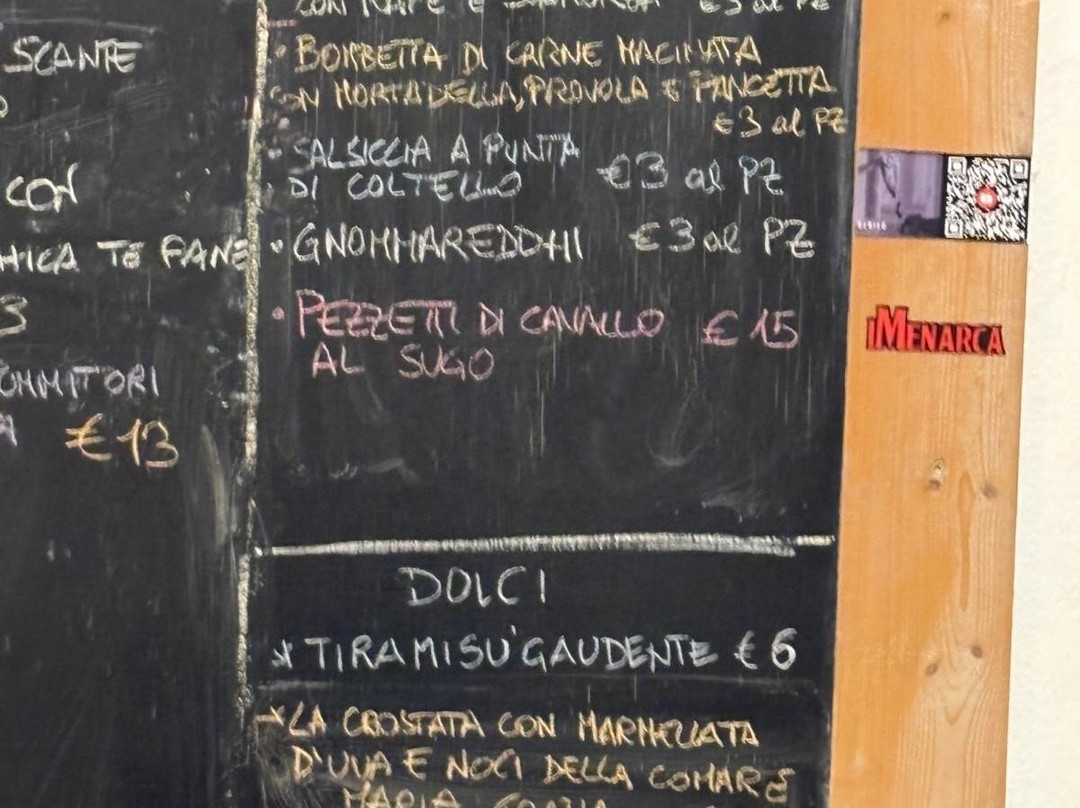 SCANTE
CON
TE PANE
€13
€3 al PZ
• BOMBETTA DI CARNE MACINATA
CON MORTADELLA, PROVOLA E PANCETTA
€3 al PZ
• SALSICCIA A PUNTA
DI COLTELLO €3 al PZ
• GNOMMAREDDHI €3 al PZ
• PEZZETTI DI CAVALLO €15
AL SUGO
DOLCI
* TIRAMISU' GAUDENTE €6
* LA CROSTATA CON MARMELLATA
D'UVA E NOCI DELLA COMARE
MARIA GRAZIA
iMENARCA